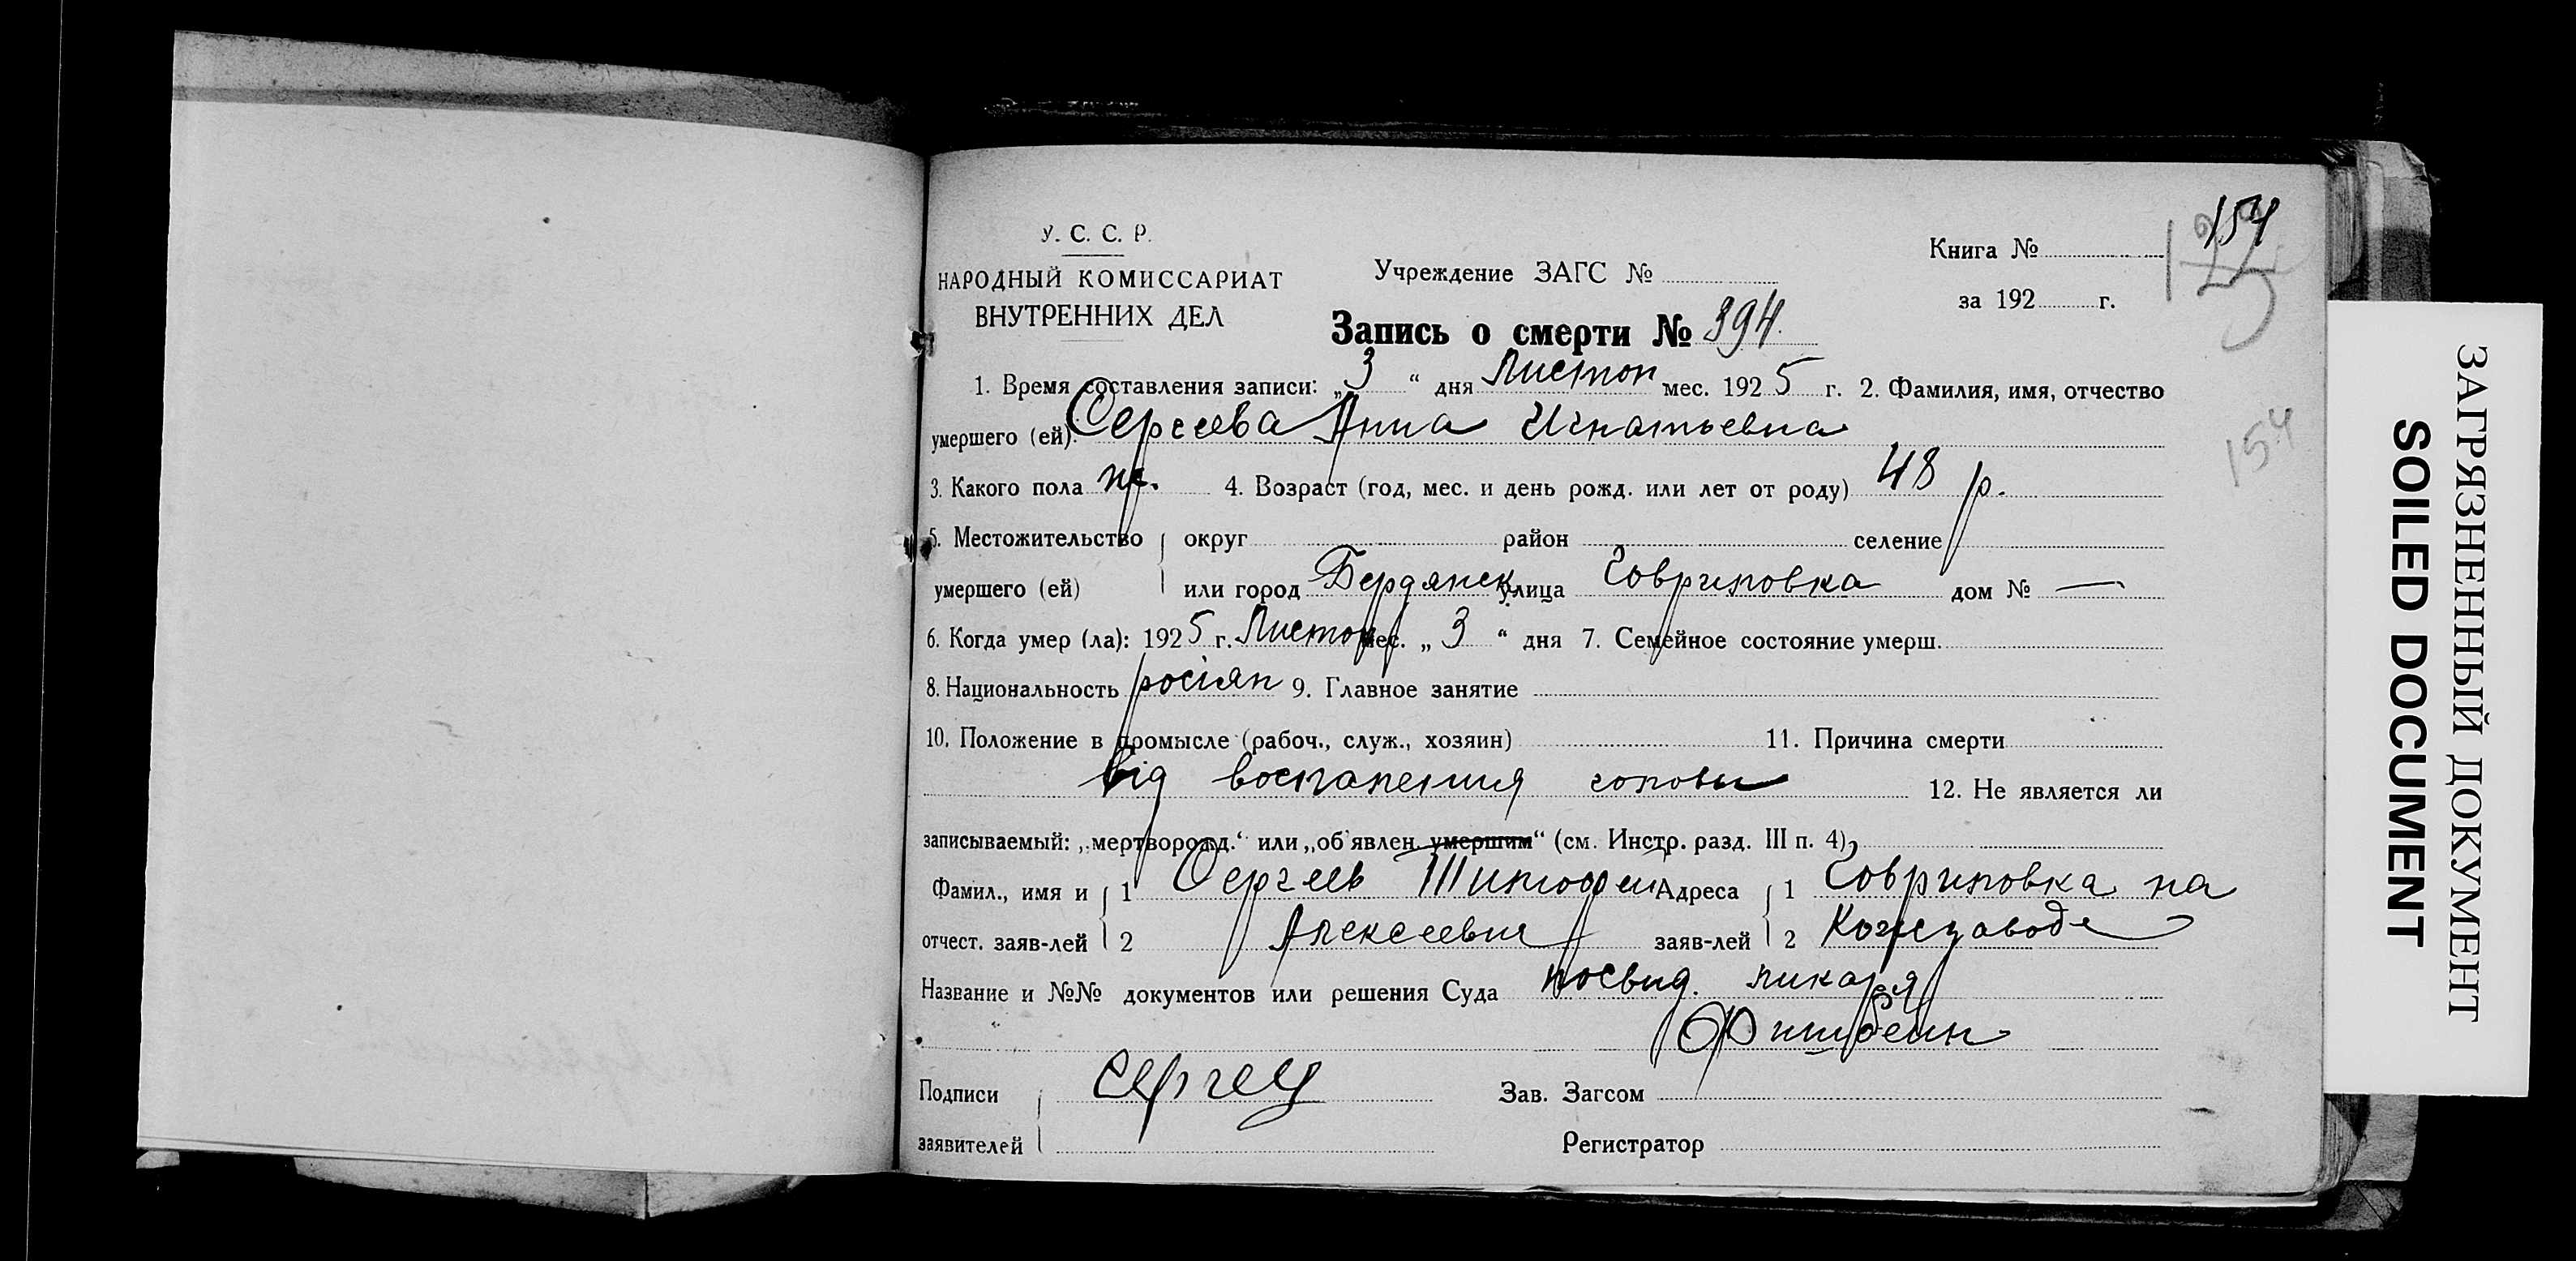 У. С. С. Р.
НАРОДНЫЙ КОМИССАРИАТ
ВНУТРЕННИХ ДЕЛ
Учреждение ЗАГС №
Книга №
за 192 г.
154
Запись о смерти № 394.
1. Время составления записи: „3“ дня Листоп мес. 1925 г. 2. Фамилия, имя, отчество
умершего (ей). Сергеева Анна Игнатьевна
3. Какого пола ж. 4. Возраст (год, мес. и день рожд. или лет от роду) 48 р.
154
5. Местожительство округ район селение
умершего (ей) или город Бердянск улица Говриловка дом № —
6. Когда умер (ла): 1925 г. Листоп мес. „3“ дня 7. Семейное состояние умерш.
8. Национальность росіян 9. Главное занятие
10. Положение в промысле (рабоч., служ., хозяин) 11. Причина смерти
від воспаления головы 12. Не является ли
записываемый: „мертворожд.“ или „об'явлен умершим“ (см. Инстр. разд. III п. 4)
Фамил., имя и 1 Сергеев Адреса 1 Говриловка на
отчест. заяв-лей 2 Алексеевич заяв-лей 2 Кожзаводе
Название и №№ документов или решения Суда посвид. ликаря
Фишбейн
Подписи Зав. Загсом
заявителей Регистратор
ЗАГРЯЗНЕННЫЙ ДОКУМЕНТ
SOILED DOCUMENT